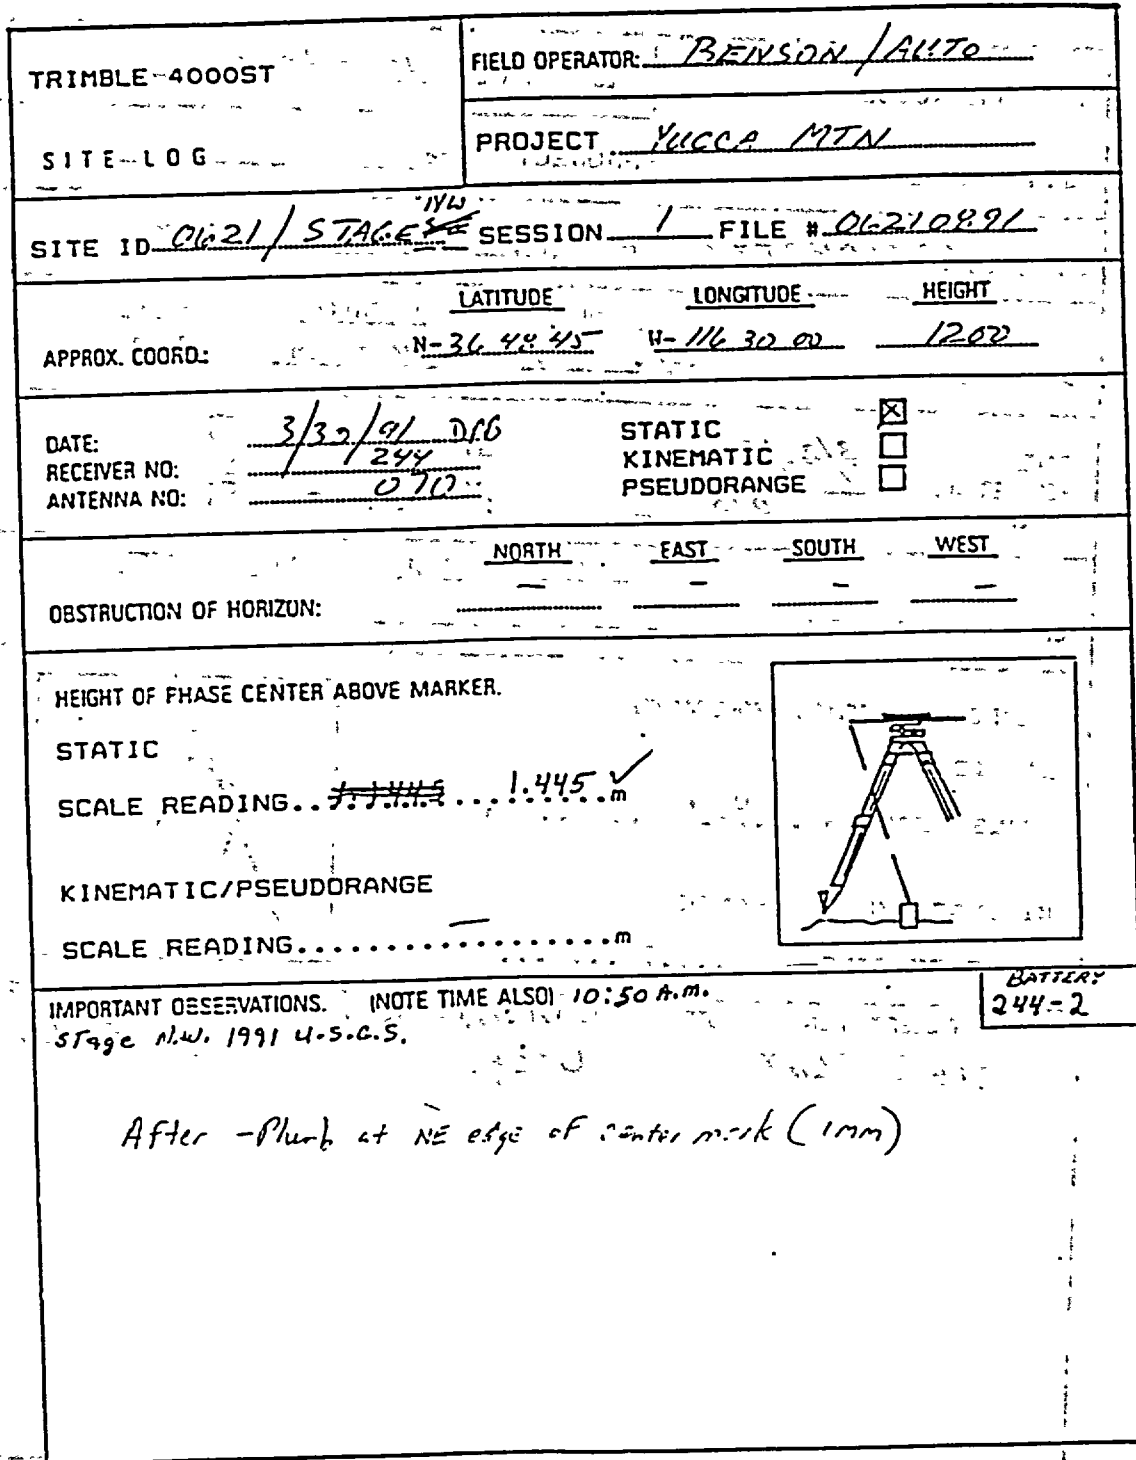 TRIMBLE-4000ST
SITE LOG
FIELD OPERATOR: BENSON / AUTO
PROJECT YUCCA MTN
NW
SITE ID 0621 / STAGE SESSION 1 FILE # 06210891
LATITUDE LONGITUDE HEIGHT
APPROX. COORD.: N-36 48 45 W-116 30 00 1200
DATE: 3/30/91
RECEIVER NO: 244
ANTENNA NO: 070
STATIC ☒
KINEMATIC ☐
PSEUDORANGE ☐
NORTH EAST SOUTH WEST
OBSTRUCTION OF HORIZON: – – – –
HEIGHT OF PHASE CENTER ABOVE MARKER.
STATIC
SCALE READING.. 1.445 m ✓
KINEMATIC/PSEUDORANGE
SCALE READING.................. — m
IMPORTANT OBSERVATIONS. (NOTE TIME ALSO) 10:50 A.M.
BATTERY
244-2
Stage N.W. 1991 U.S.G.S.
After - Plumb at NE edge of center mark (1mm)